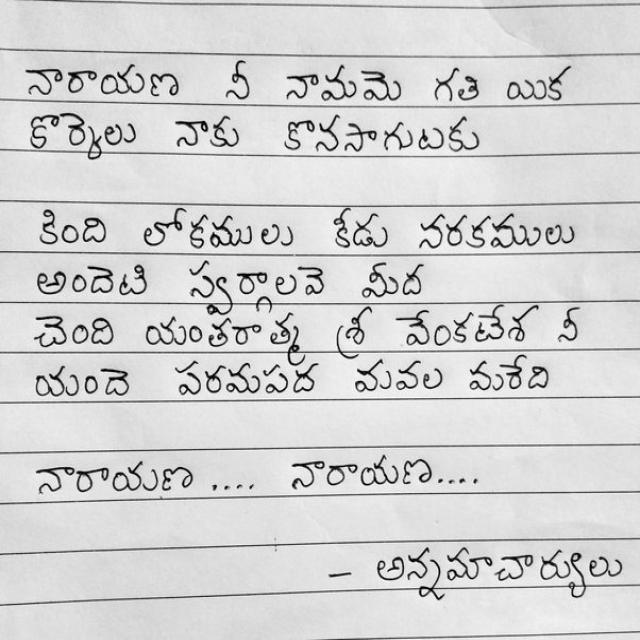 నారాయణ నీ నామమె గతి యిక
కొర్కెలు నాకు కొనసాగుటకు
కింది లోకములు కీడు నరకములు
అందెటి స్వర్గాలవె మీద
చెంది యంతరాత్మ శ్రీ వేంకటేశ నీ
యందె పరమపద మవల మరేది
నారాయణ .... నారాయణ....
- అన్నమాచార్యులు